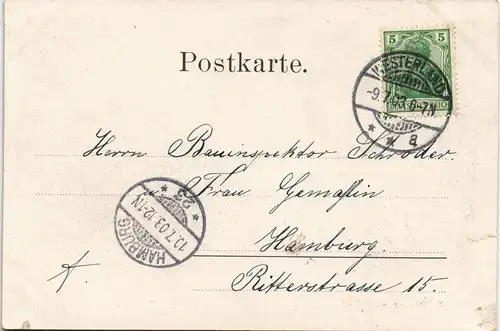 5 5
WESTERLAND
-9.7.03.6-7N
* * a
Postkarte.
Herrn Bauinspektor Schröder
u. Frau Gemahlin
Hamburg.
Ritterstrasse 15.
HAMBURG
10.7.03.12-1V
* 23 *